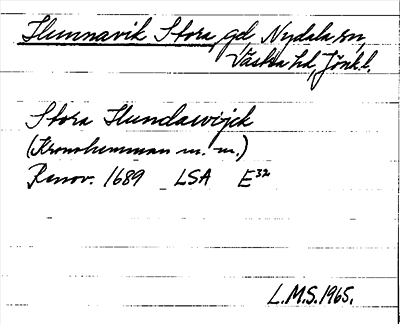 Hunnavik Stora, gd Nydala sn,
Västra hd, Jönk. l.
Stora Hundawijck
(Kronohemman m. m.)
Renov. 1689 LSA E³²
L.M.S. 1965.